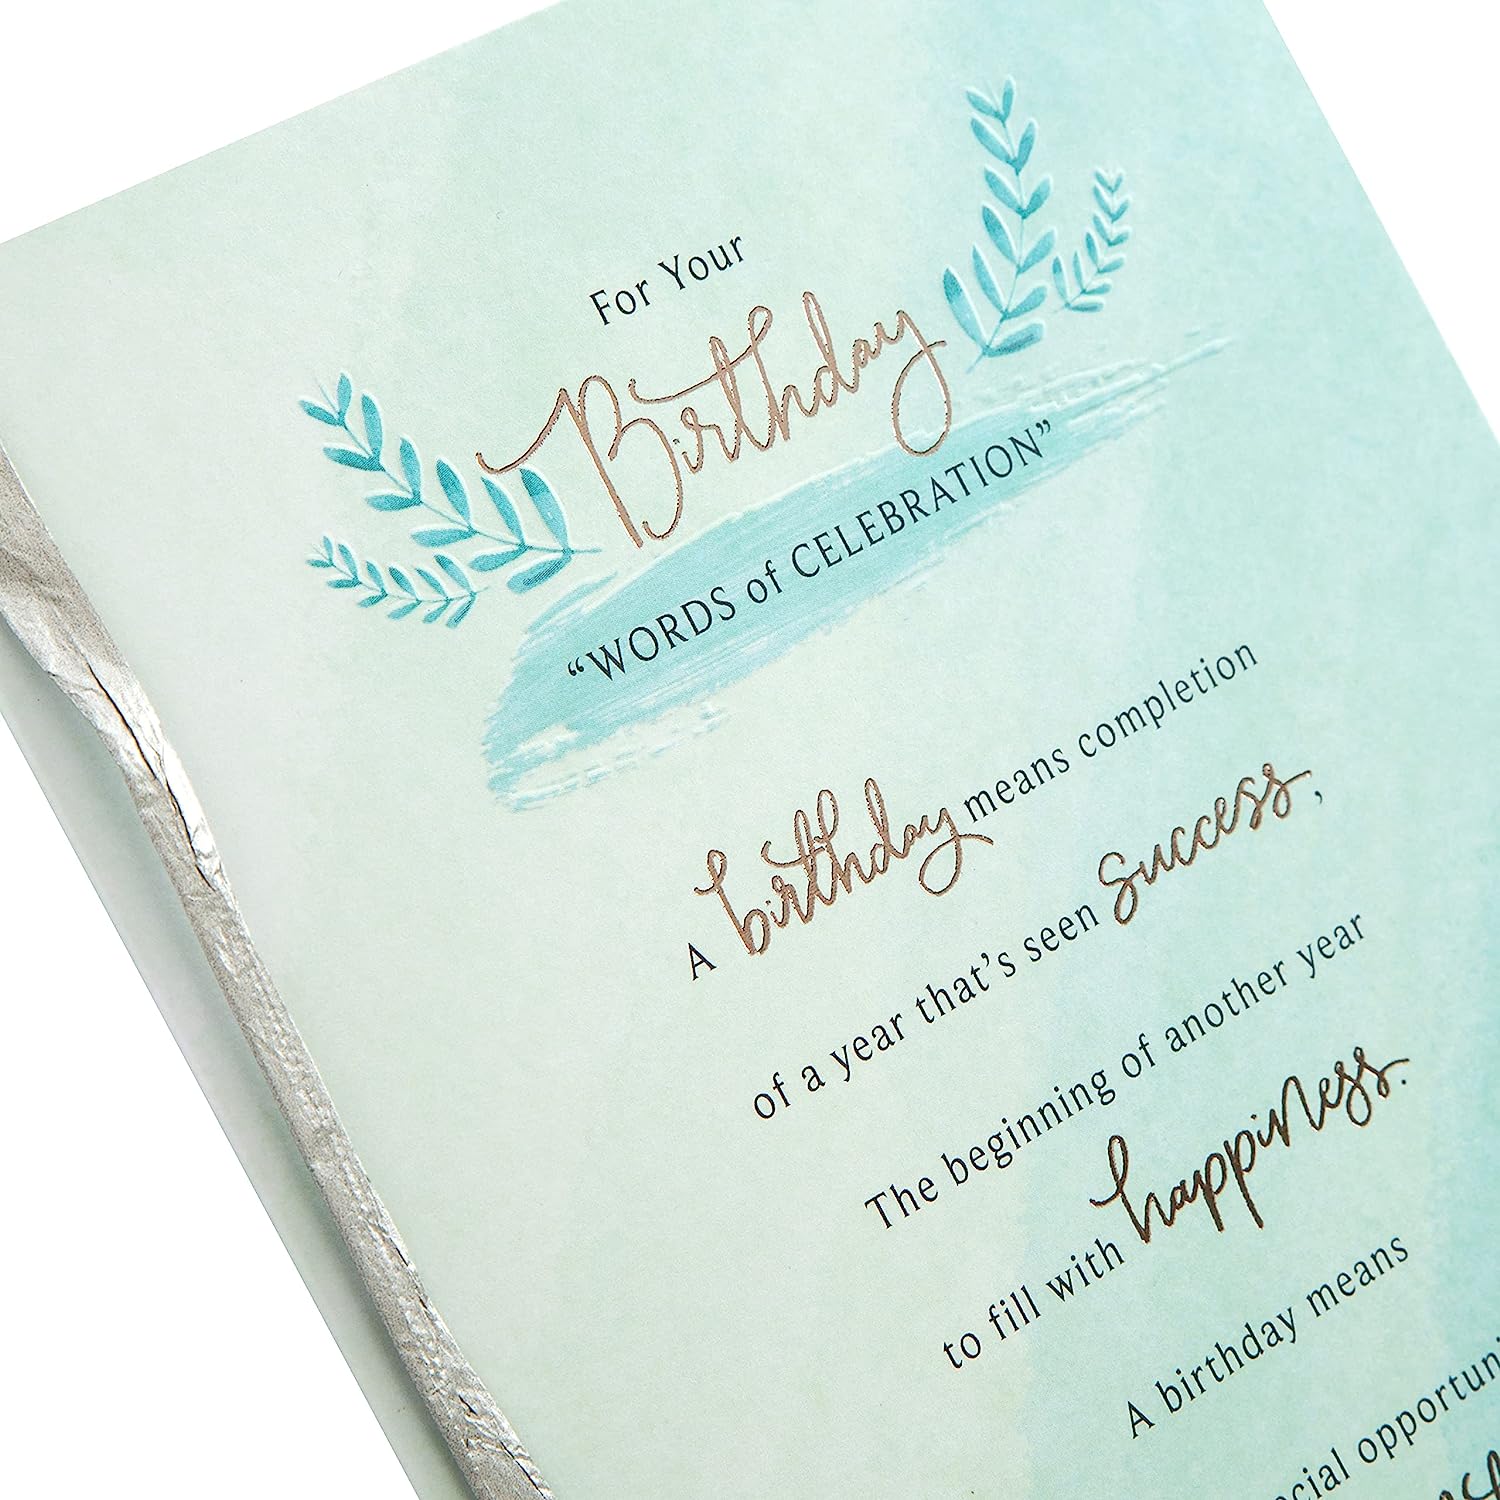 For Your
Birthday
“WORDS of CELEBRATION”
A birthday means completion
of a year that’s seen success,
The beginning of another year
to fill with happiness.
A birthday means
opportuni